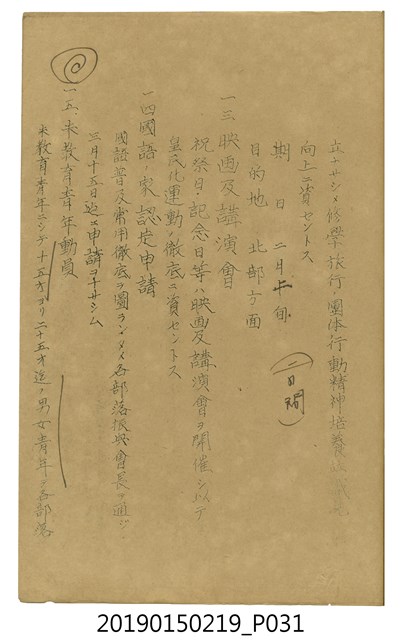 立ナサシメ修學旅行ノ團体行動精神培養
向上ニ資セントス
期日 二月上旬 (二日間)
目的地 北部方面
一三 映画及講演會
祝祭日・記念日等ハ映画及講演會ヲ開催シ以テ
皇民化運動ノ徹底ニ資セントス
一四 國語ノ家認定申請
國語普及常用徹底ヲ圖ランタメ各部落振興會長ヲ通ジ
三月十五日迄ニ申請ヲナサシム
一五、未教育青年動員
未教育青年ニシテ十五才ヨリ二十五才迄ノ男女青年ヲ各部落
20190150219_P031